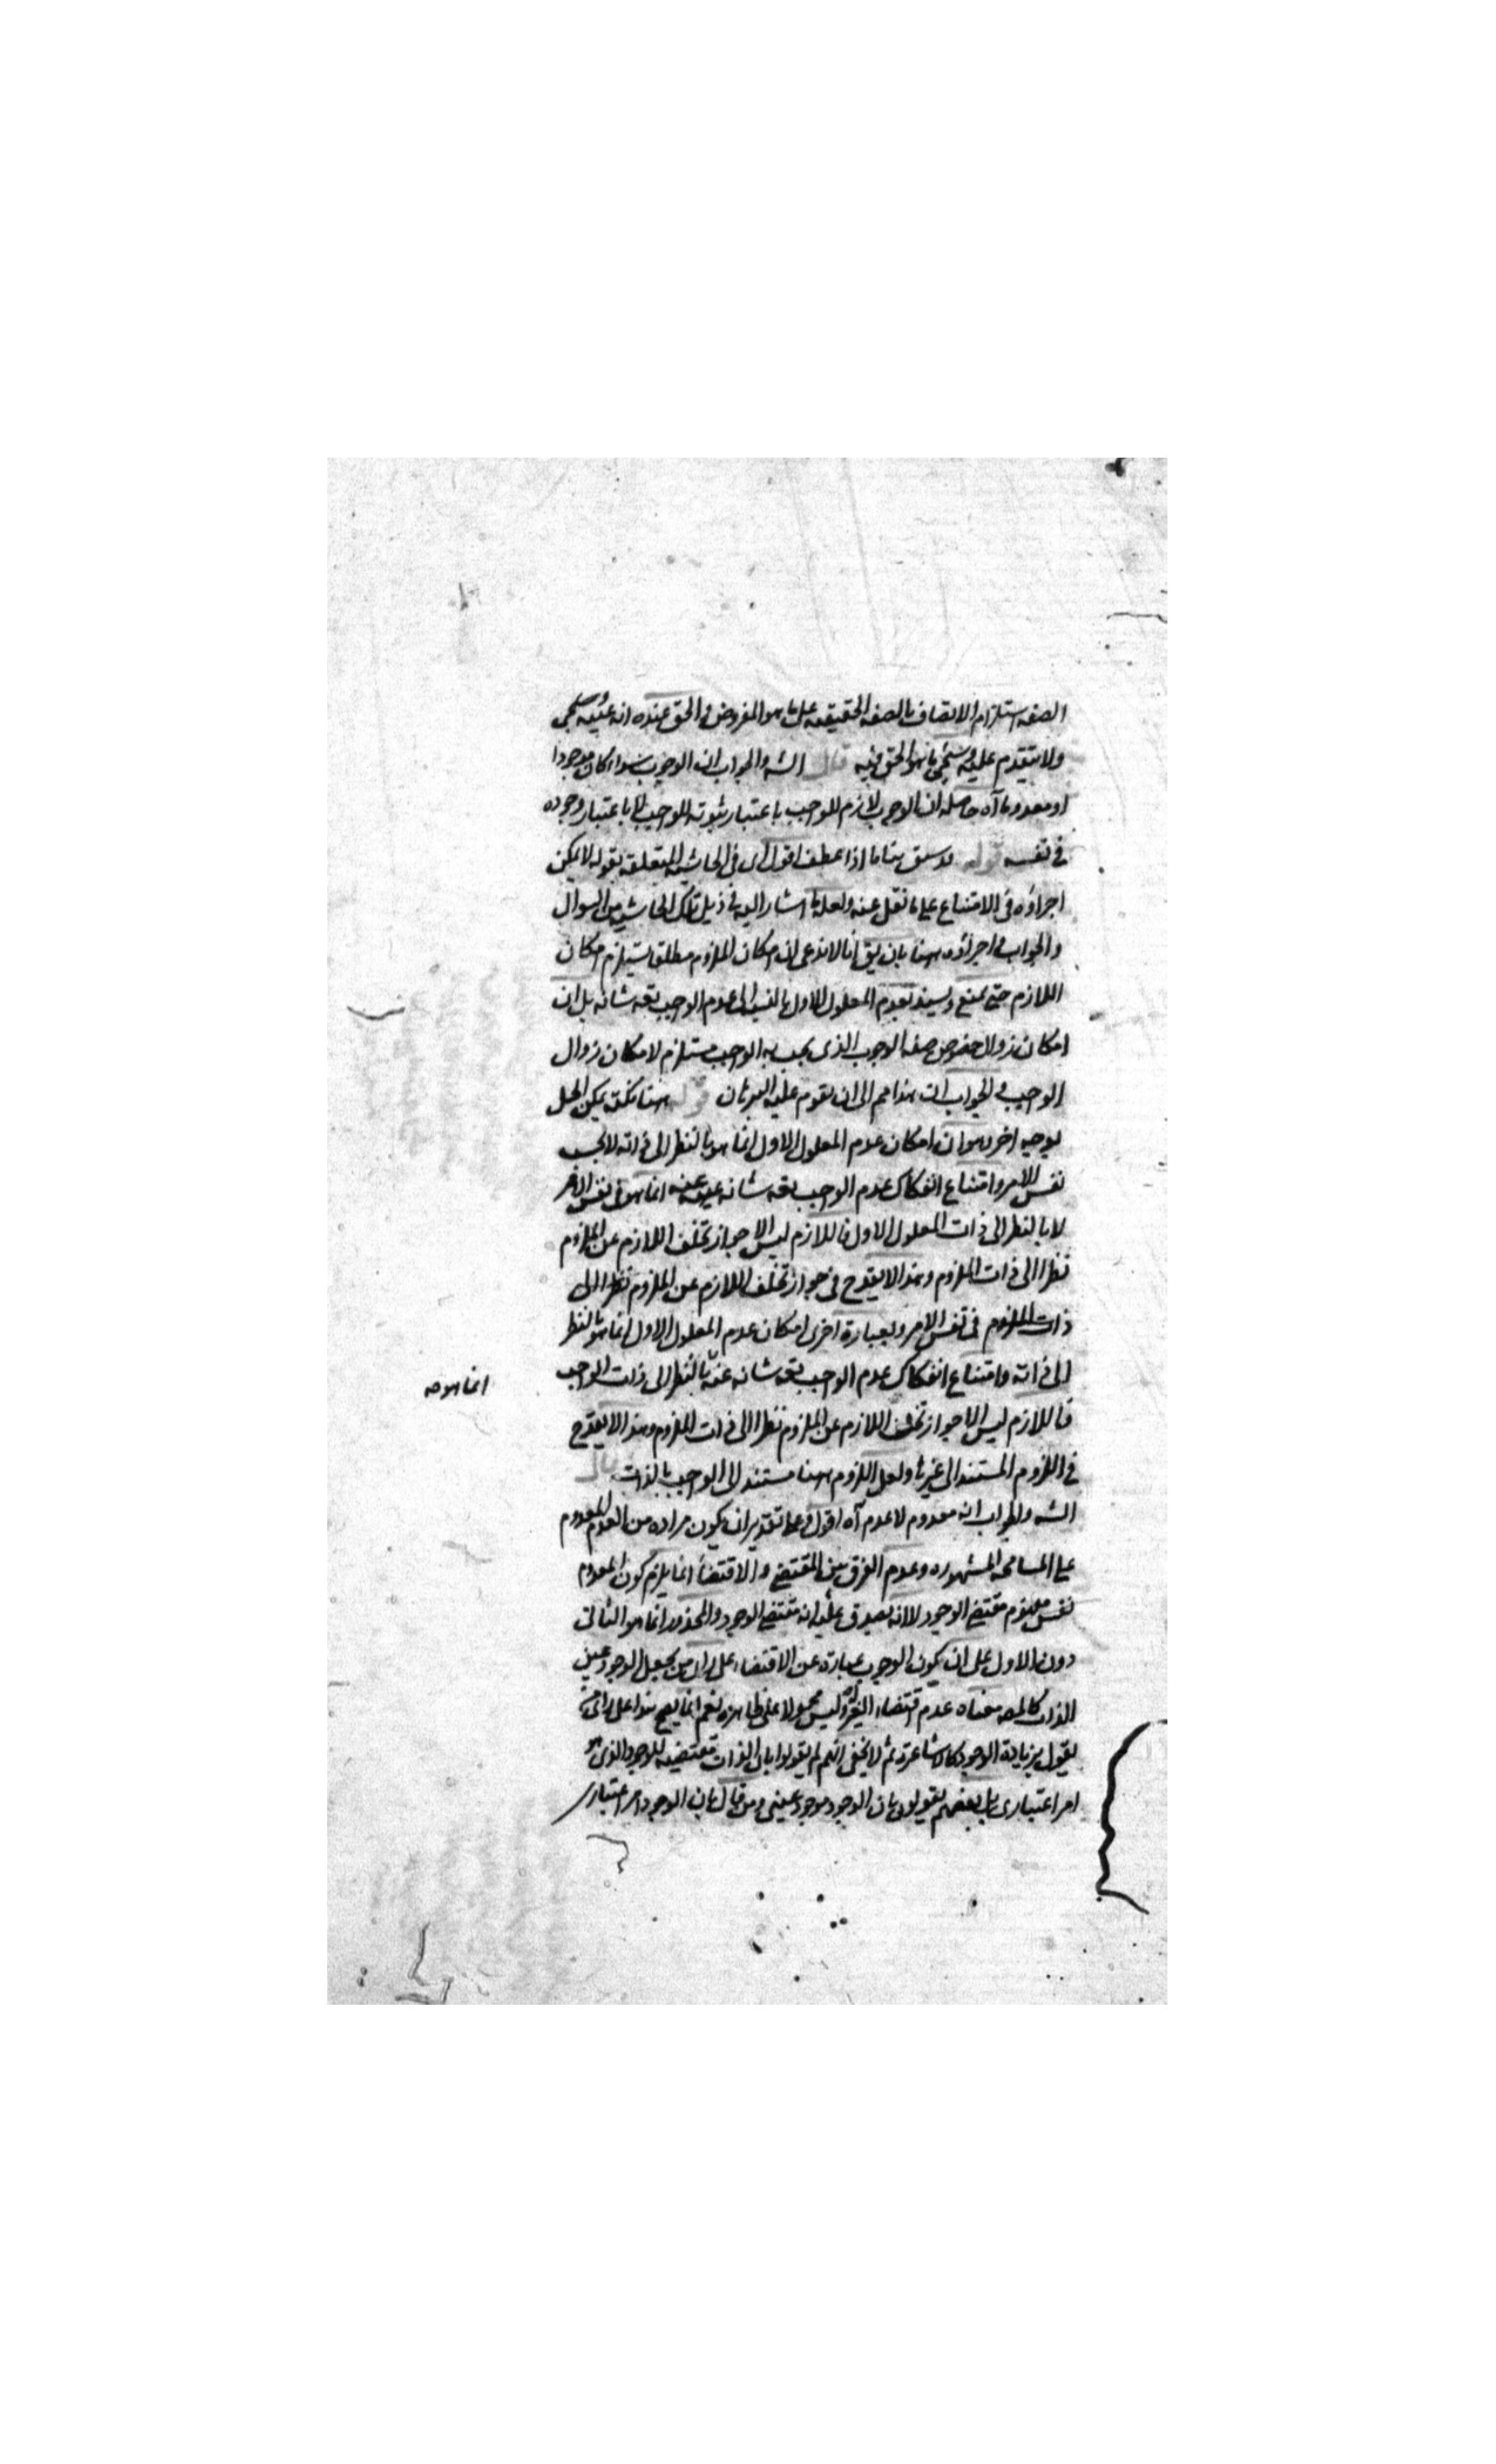 الصفة استلزام الاتصاف بالصفة الحقيقية على ما هو المفروض و الحق عنده انه عينه سيجئ
ولا يتقدم عليه و سيجئ ما هو الحق فيه قال الشه والجواب ان الوجوب سواء كان موجودا
او معدوما آه حاصله ان الوجوب لازم للواجب باعتبار ثبوته للواجب لا باعتبار وجوده
فى نفسه قوله اقول اى فى الحاشية المتعلقة بقوله لا يمكن
اجراؤه فى الامتناع على ما نقل عنه ولعله ما اشار اليه فى ذيل تلك الحاشية من السوال
والجواب و اجراؤه ههنا بان يق انا لا ندعى ان امكان الملزوم مطلقا يستلزم امكان
اللازم حتى يمنع ويسند بعدم المعلول الاول بالنسبة الى عدم الواجب تعه شانه بل ان
امكان زوال خصوص صفة الوجوب الذى يجب به الواجب مستلزم لامكان زوال
الواجب و الجواب ان هذا مم الى ان يقوم عليه البرهان قوله ههنا نكتة يمكن الحل
بوجه اخر وهو ان امكان عدم المعلول الاول انما هو بالنظر الى ذاته لا بحسب
نفس الامر وامتناع انفكاك عدم الواجب تعه شانه عنه انما هو فى نفس الامر
لا بالنظر الى ذات المعلول الاول فاللازم ليس الا جواز تخلف اللازم عن الملزوم
نظرا الى ذات الملزوم وهذا لا يقدح فى جواز تخلف اللازم عن الملزوم نظرا الى
ذات الملزوم فى نفس الامر وبعبارة اخرى امكان عدم المعلول الاول انما هو بالنظر
الى ذاته وامتناع انفكاك عدم الواجب تعه شانه عنه بالنظر الى ذات الواجب
انما هو صه
فاللازم ليس الا جواز تخلف اللازم عن الملزوم نظرا الى ذات الملزوم وهذا لا يقدح
فى اللزوم المستند الى غيرها ولعل اللزوم ههنا مستند الى الواجب بالذات قال
الشه والجواب انه معدوم لا عدم آه اقول و على تقدير ان يكون مراده من العدم المعدوم
على المسامحة المشهورة وعدم الفرق بين المقتضى والاقتضأ انما يلزم كون المعدوم
نفس مفهوم مقتضى الوجود لا انه يصدق عليه انه مقتضى الوجود والمحذور انما هو الثانى
دون الاول على ان يكون الوجوب عبارة عن الاقتضاء على راى من يجعل الوجود عين
الذات معناه عدم اقتضاء الغير وليس محمولا على ظاهره نعم انما يصح هذا على راى من
يقول بزيادة الوجود كالاشاعرة ثم لا يخفى انهم لم يقولوا بان الذات مقتضية للوجود الذى هو
امر اعتبارى بل بعضهم يقولون بان الوجود موجود عينى ومن قال بان الوجود امر اعتبارى